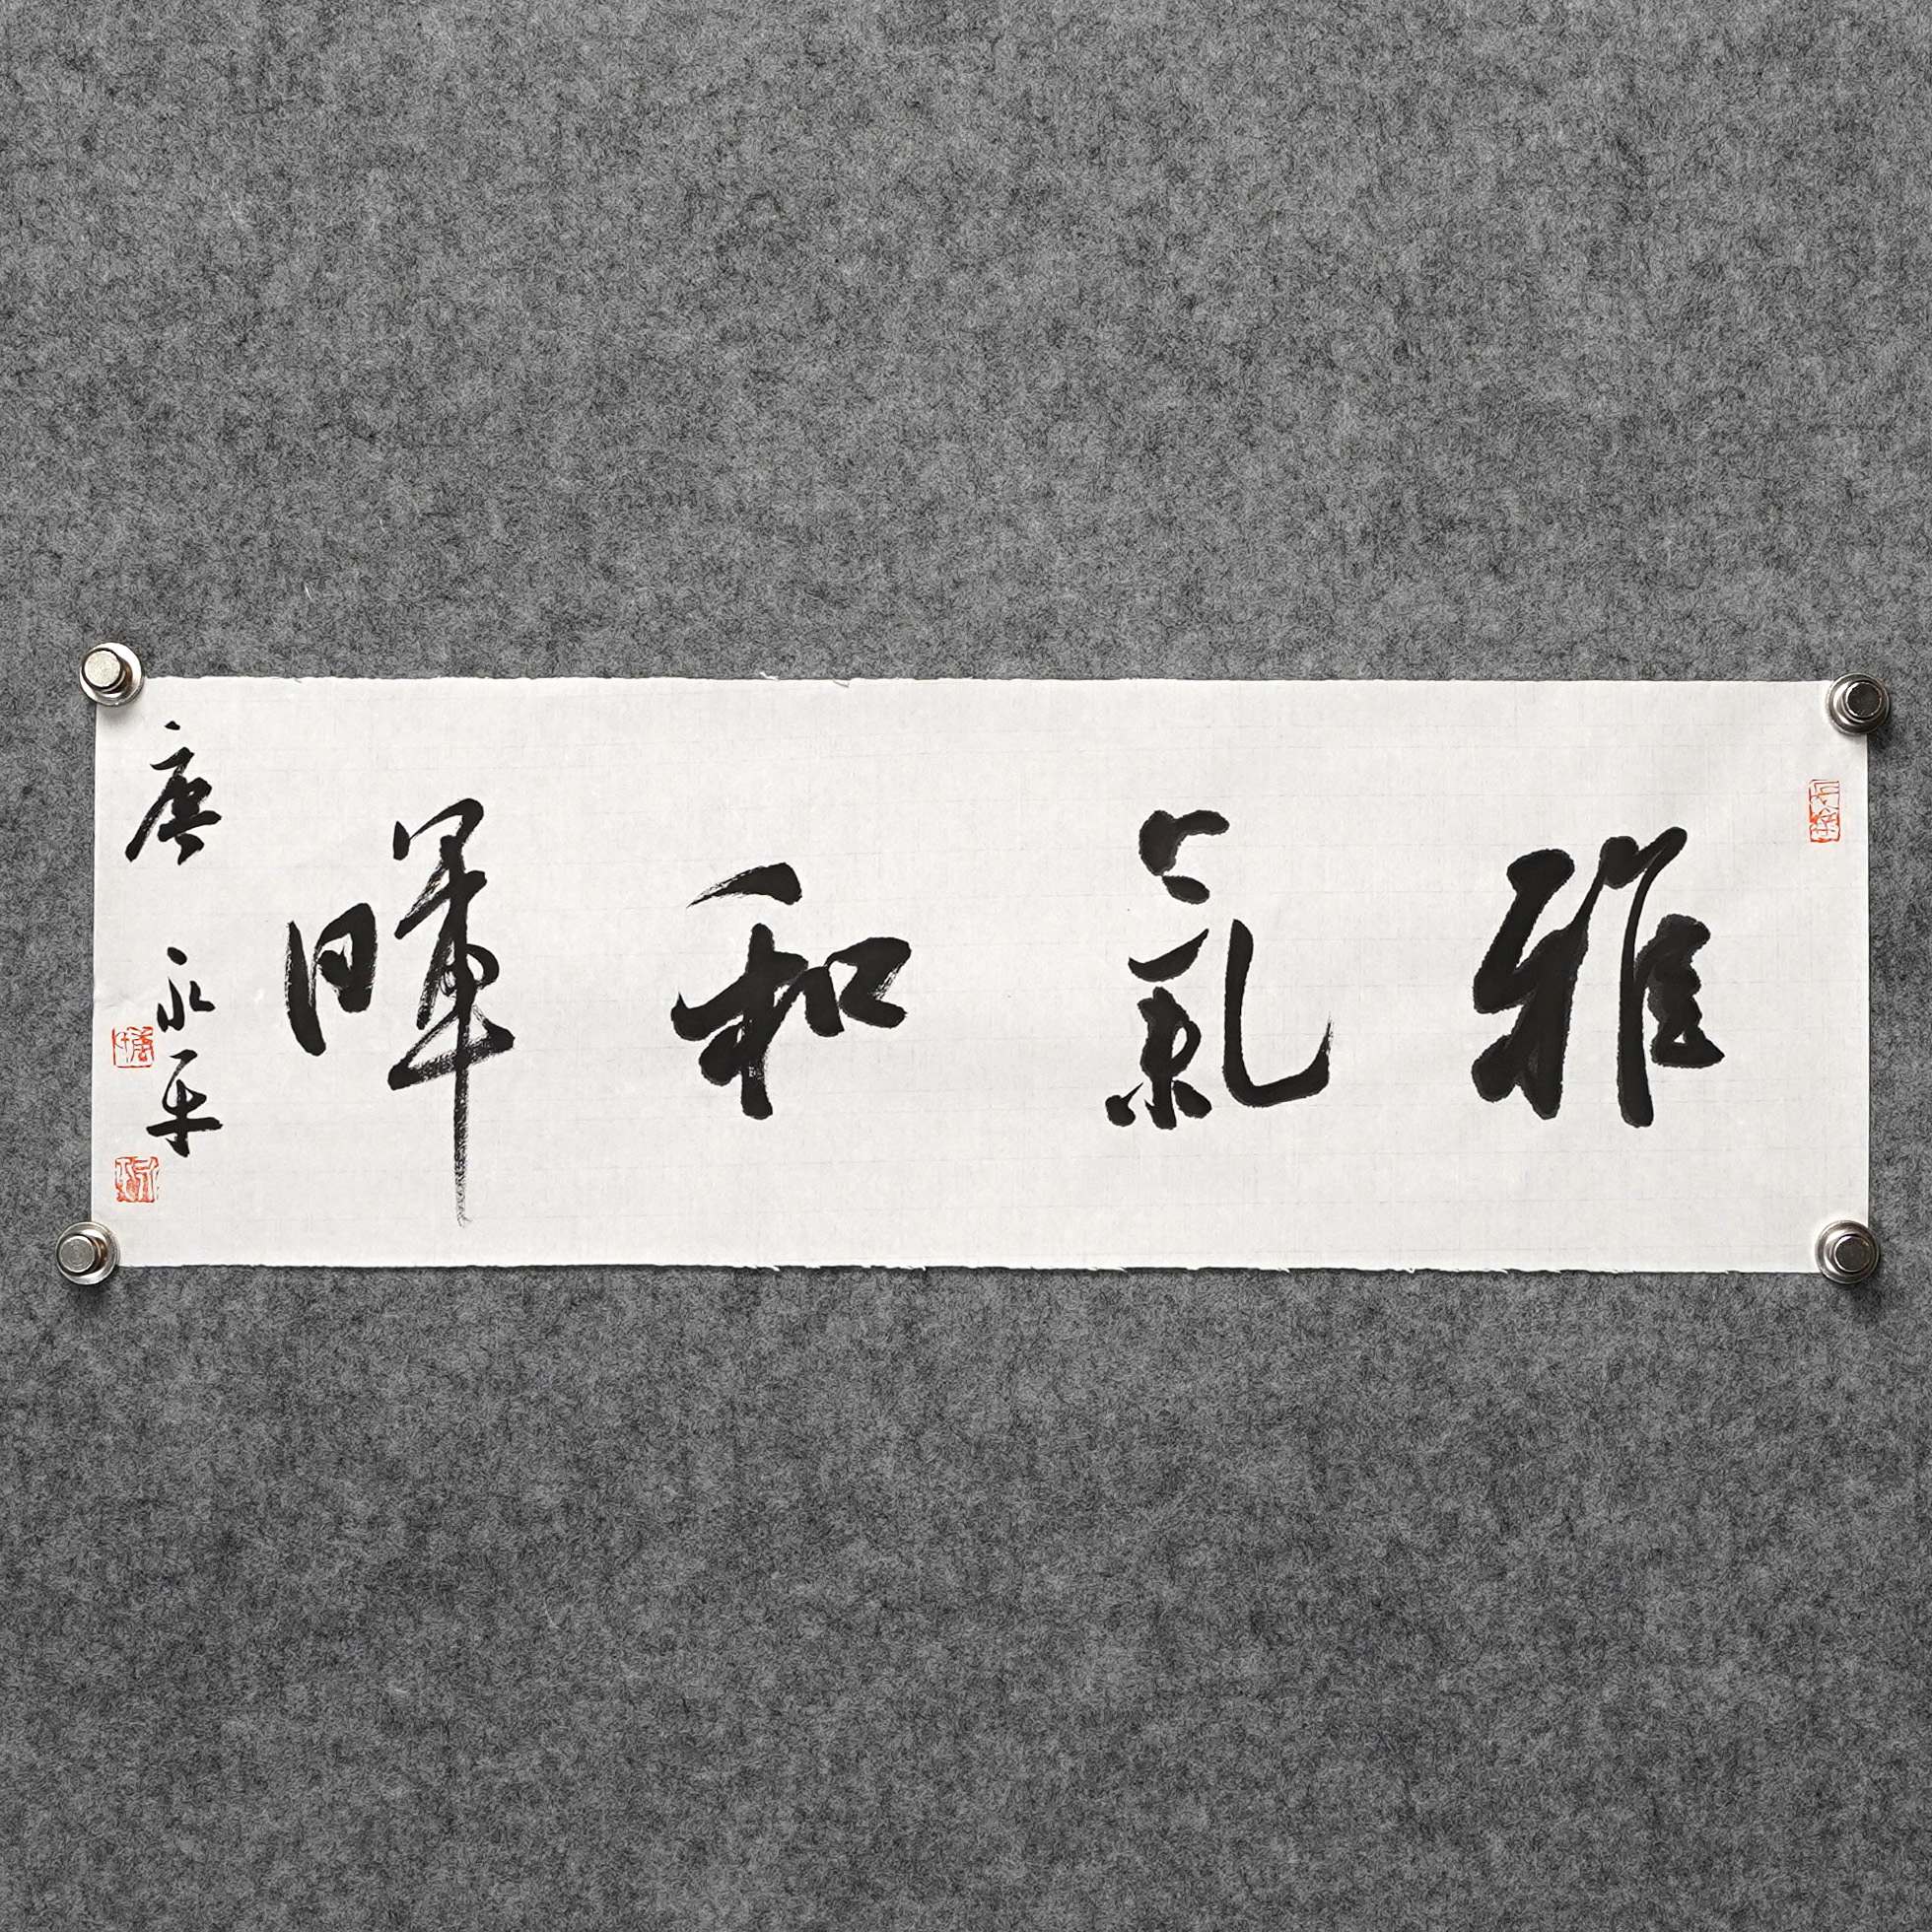 雅氣和暉
唐永平